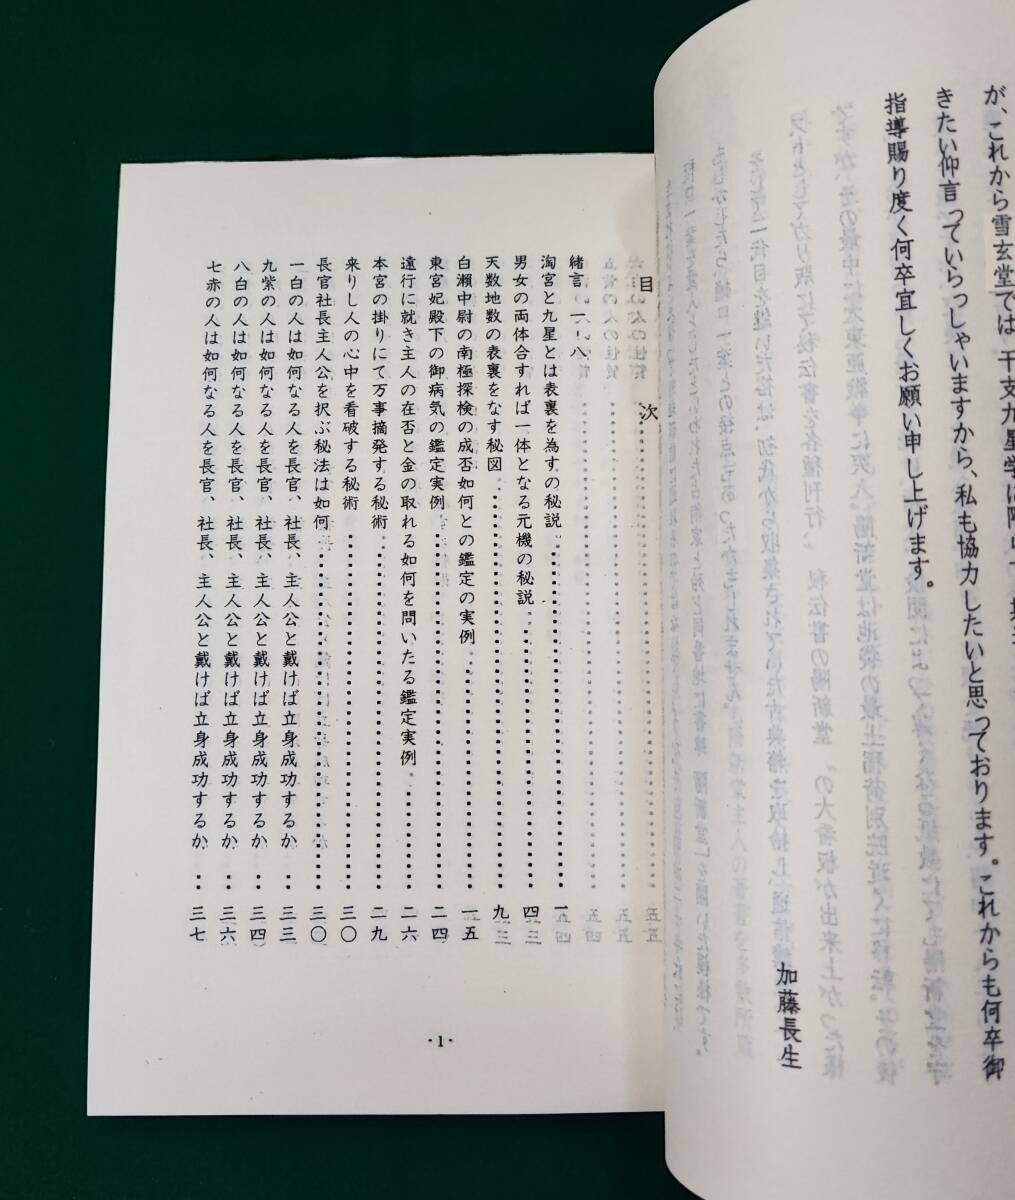 が、これから雪玄堂では干支九星学に
きたい仰言っていらっしゃいますから、私も協力したいと思っております。これからも何卒御
指導賜り度く何卒宜しくお願い申し上げます。
加藤長生
目次
緒言 一-八
淘宮と九星とは表裏を為すの秘説 一
男女の両体合すれば一体となる元機の秘説 四
天数地数の表裏をなす秘図 九
白瀬中尉の南極探検の成否如何との鑑定の実例 一五
東宮妃殿下の御病気の鑑定実例 二四
遠行に就き主人の在否と金の取れる如何を問いたる鑑定実例 二六
本宮の掛りにて万事摘発する秘術 二九
来りし人の心中を看破する秘術 三〇
長官社長主人公を択ぶ秘法は如何 三〇
一白の人は如何なる人を長官、社長、主人公と戴けば立身成功するか 三三
九紫の人は如何なる人を長官、社長、主人公と戴けば立身成功するか 三四
八白の人は如何なる人を長官、社長、主人公と戴けば立身成功するか 三六
七赤の人は如何なる人を長官、社長、主人公と戴けば立身成功するか 三七
-1-